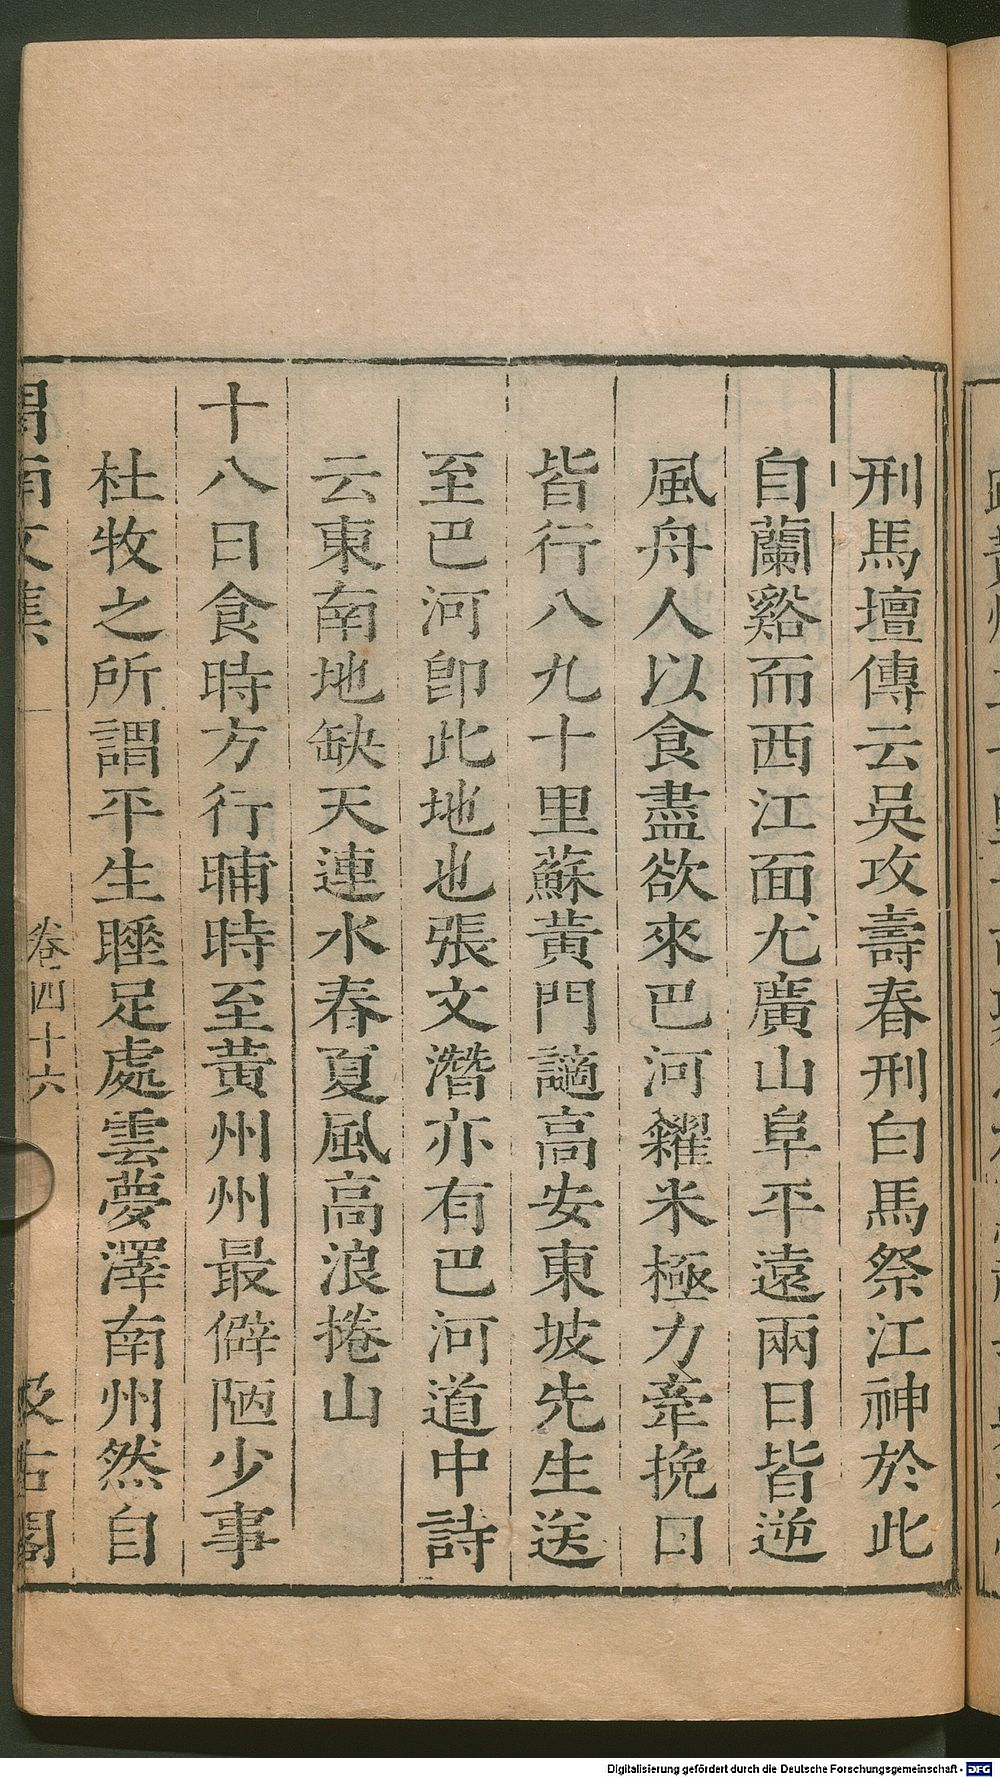 刑馬壇傳云吳攻壽春刑白馬祭江神於此
自蘭谿而西江面尤廣山阜平遠兩日皆逆
風舟人以食盡欲來巴河糴米極力牽挽日
皆行八九十里蘇黃門謫高安東坡先生送
至巴河即此地也張文潛亦有巴河道中詩
云東南地缺天連水春夏風高浪捲山
十八日食時方行晡時至黃州州最僻陋少事
杜牧之所謂平生睡足處雲夢澤南州然自
渭南文集 卷四十六 汲古閣
Digitalisierung gefördert durch die Deutsche Forschungsgemeinschaft - DFG